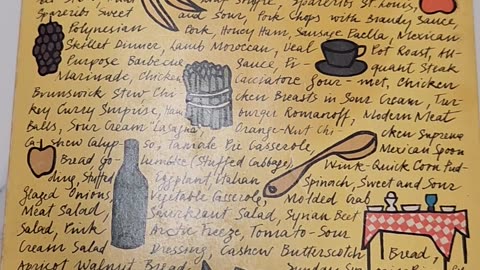 Spareribs St. Louis,
Spareribs Sweet and Sour, Pork Chops with Brandy Sauce,
Polynesian Pork, Honey Ham, Sausage Paella, Mexican
Skillet Dinner, Lamb Moroccan, Veal Pot Roast, All-
Purpose Barbecue Sauce, Pi- quant Steak
Marinade, Chicken Cacciatore Gour- met, Chicken
Brunswick Stew Chi cken Breasts in Sour Cream, Tur-
key Curry Surprise, Ham burger Romanoff, Modern Meat
Balls, Sour Cream Lasagna, Orange-Nut Chi cken Supreme
Ca shew Calyp- so, Tamale Pie Casserole, Mexican Spoon
Bread Go- lumbke (Stuffed Cabbage), Wink-Quick Corn Pud-
ding, Stuffed Eggplant, Italian Spinach, Sweet and Sour
Glazed Onions, Vegetable Casserole, Molded Crab
Meat Salad, Sauerkraut Salad, Syrian Beet
Salad, Pink Arctic Freeze, Tomato-Sour
Cream Salad Dressing, Cashew Butterscotch Bread,
Apricot Walnut Bread, Sundae